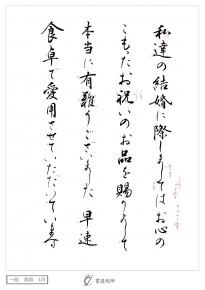 私達の結婚に際しましてはお心の
こもったお祝いのお品を賜りまして
本当に有難うございました 早速
食卓で愛用させていただいています
一般 実用 4月